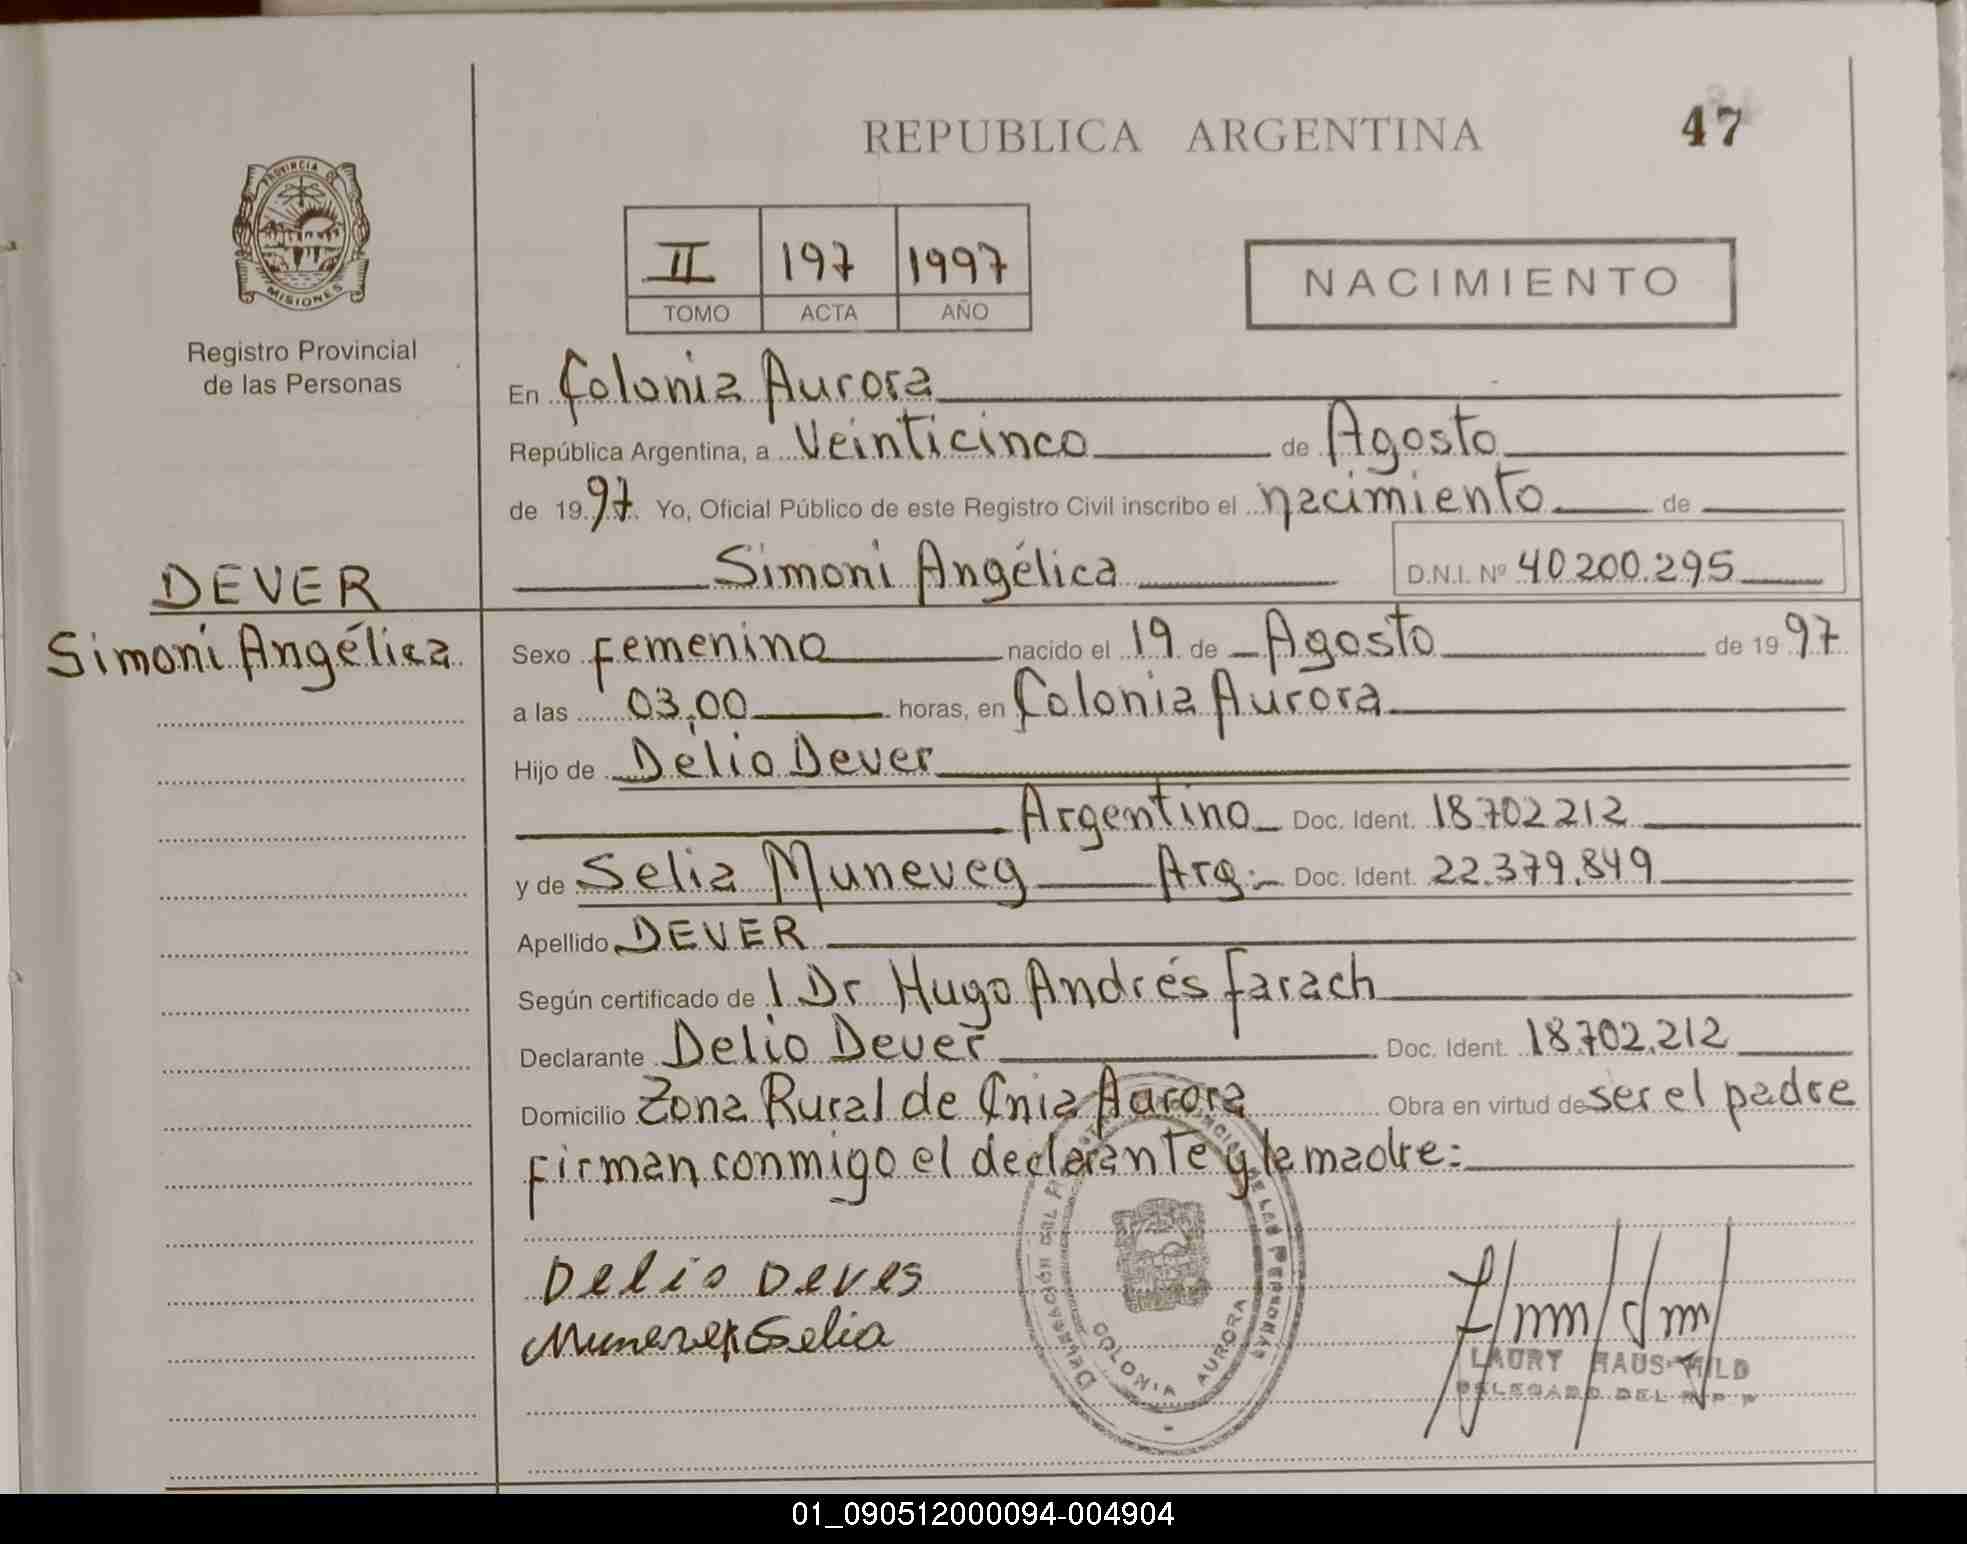 REPUBLICA ARGENTINA
47
PROVINCIA DE
MISIONES
Registro Provincial
de las Personas
II 197 1997
TOMO ACTA AÑO
NACIMIENTO
En Colonia Aurora
República Argentina, a Veinticinco de Agosto
de 1997. Yo, Oficial Público de este Registro Civil inscribo el nacimiento de
Simoni Angélica D.N.I. Nº 40200.295
DEVER
Simoni Angélica
Sexo femenino nacido el 19 de Agosto de 1997
a las 03,00 horas, en Colonia Aurora
Hijo de Delio Dever
Argentino Doc. Ident. 18.702212
y de Selia Muneveg Arg.- Doc. Ident. 22.379.849
Apellido DEVER
Según certificado de l Dr Hugo Andrés Farach
Declarante Delio Dever Doc. Ident. 18.702.212
Domicilio Zona Rural de Cnia Aurora Obra en virtud de ser el padre
firman conmigo el declarante y la madre:
Delio Deves
Selia
COLONIA AURORA
LAURY HAUS-HILD
DELEGADO DEL R P P
01_090512000094-004904